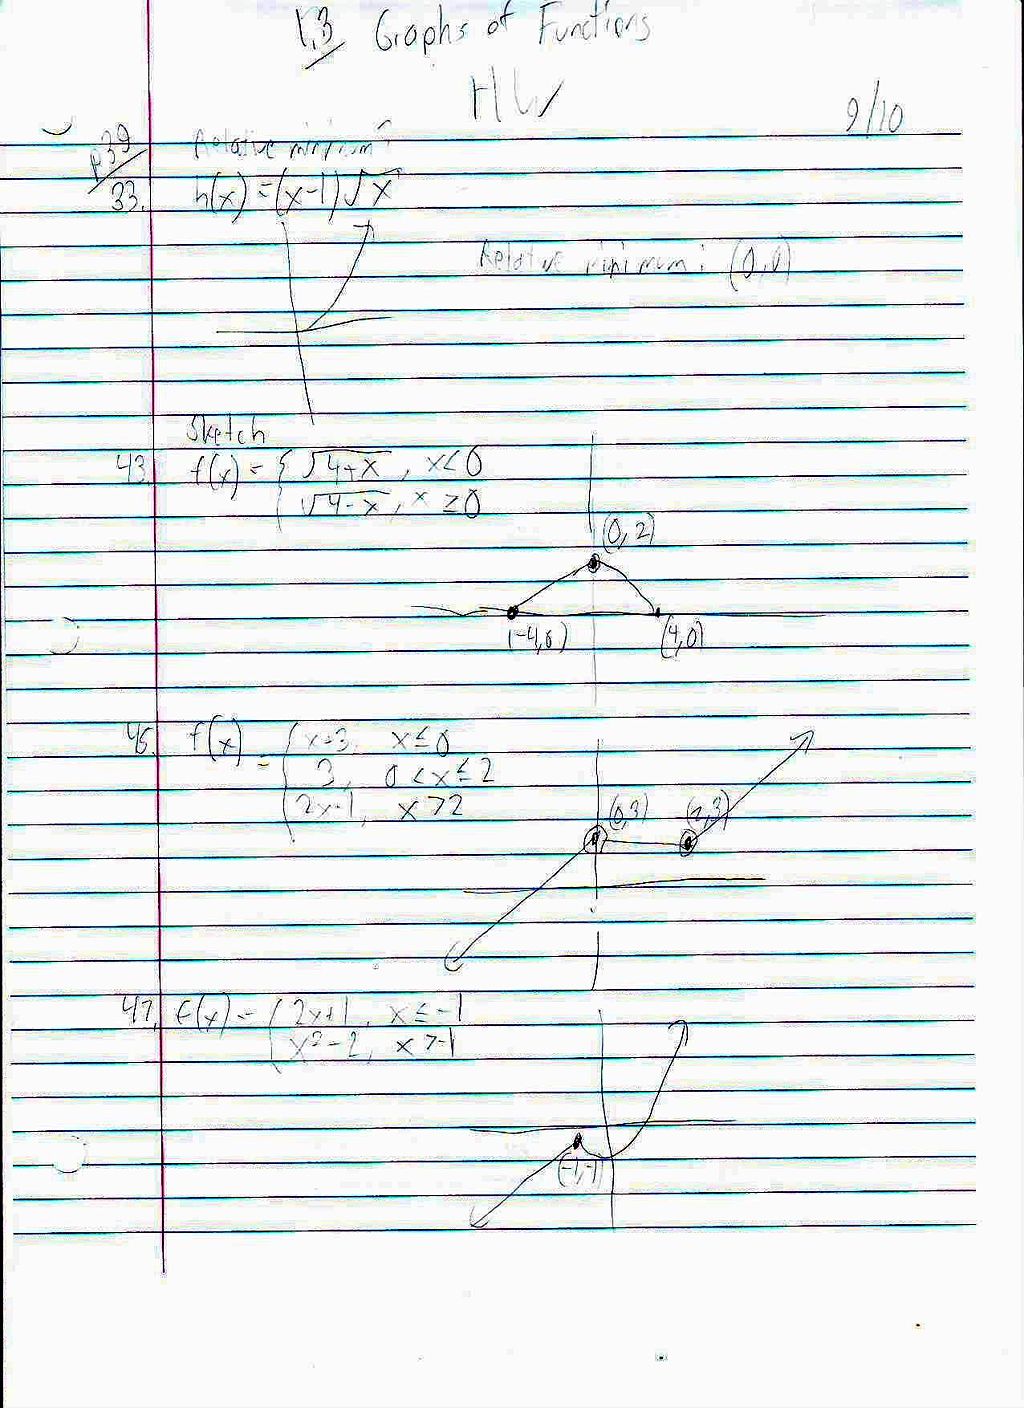 1.3 Graphs of Functions
HW
9/10
p39
Relative minimum?
33. h(x) = (x-1)√x
Relative minimum: (0,0)
Sketch
43. f(x) = { √4+x, x<0
√4-x, x ≥0
(0,2)
(-4,0) (4,0)
45. f(x) = { x+3, x≤0
3, 0<x≤2
2x-1, x>2
(0,3) (2,3)
47. f(x) = { 2x+1, x≤-1
x²-2, x>-1
(-1,-1)